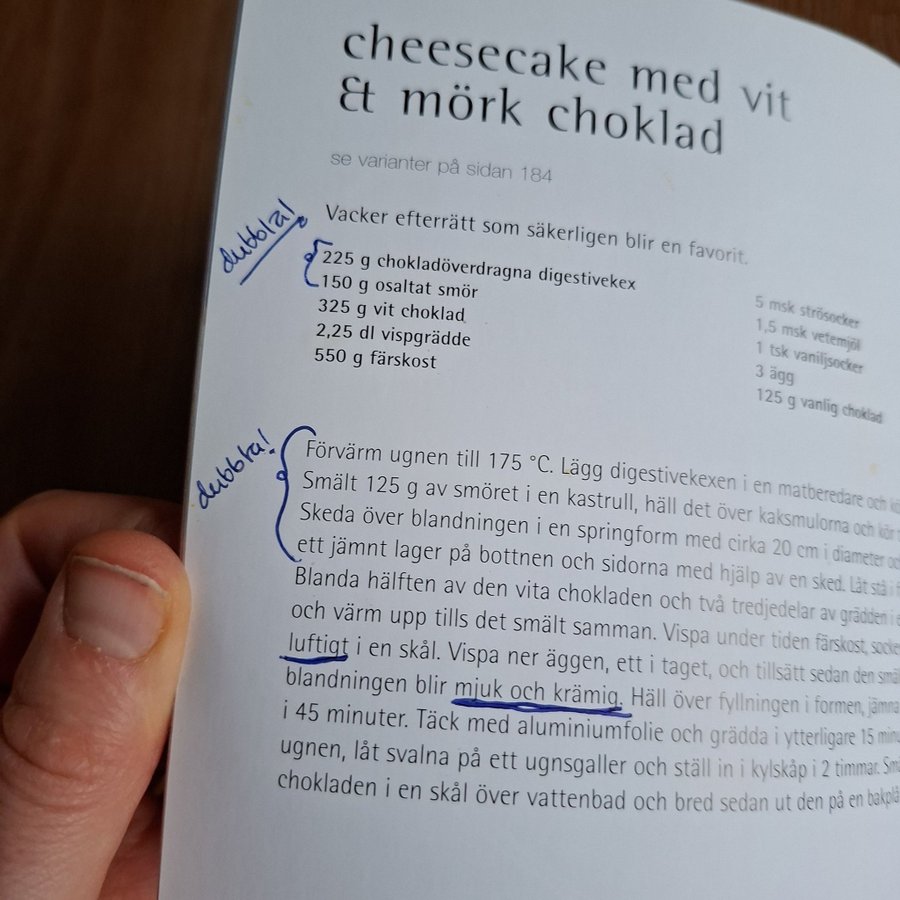 cheesecake med vit
& mörk choklad
se varianter på sidan 184
Vacker efterrätt som säkerligen blir en favorit.
dubbla!
225 g chokladöverdragna digestivekex
150 g osaltat smör
325 g vit choklad
2,25 dl vispgrädde
550 g färskost
5 msk strösocker
1,5 msk vetemjöl
1 tsk vaniljsocker
3 ägg
125 g vanlig choklad
dubbla!
Förvärm ugnen till 175 °C. Lägg digestivekexen i en matberedare och
Smält 125 g av smöret i en kastrull, häll det över kaksmulorna och kör
Skeda över blandningen i en springform med cirka 20 cm i diameter
ett jämnt lager på bottnen och sidorna med hjälp av en sked. Låt stå i
Blanda hälften av den vita chokladen och två tredjedelar av grädden i
och värm upp tills det smält samman. Vispa under tiden färskost,
luftigt i en skål. Vispa ner äggen, ett i taget, och tillsätt sedan den
blandningen blir mjuk och krämig. Häll över fyllningen i formen,
i 45 minuter. Täck med aluminiumfolie och grädda i ytterligare 15
ugnen, låt svalna på ett ugnsgaller och ställ in i kylskåp i 2 timmar.
chokladen i en skål över vattenbad och bred sedan ut den på en